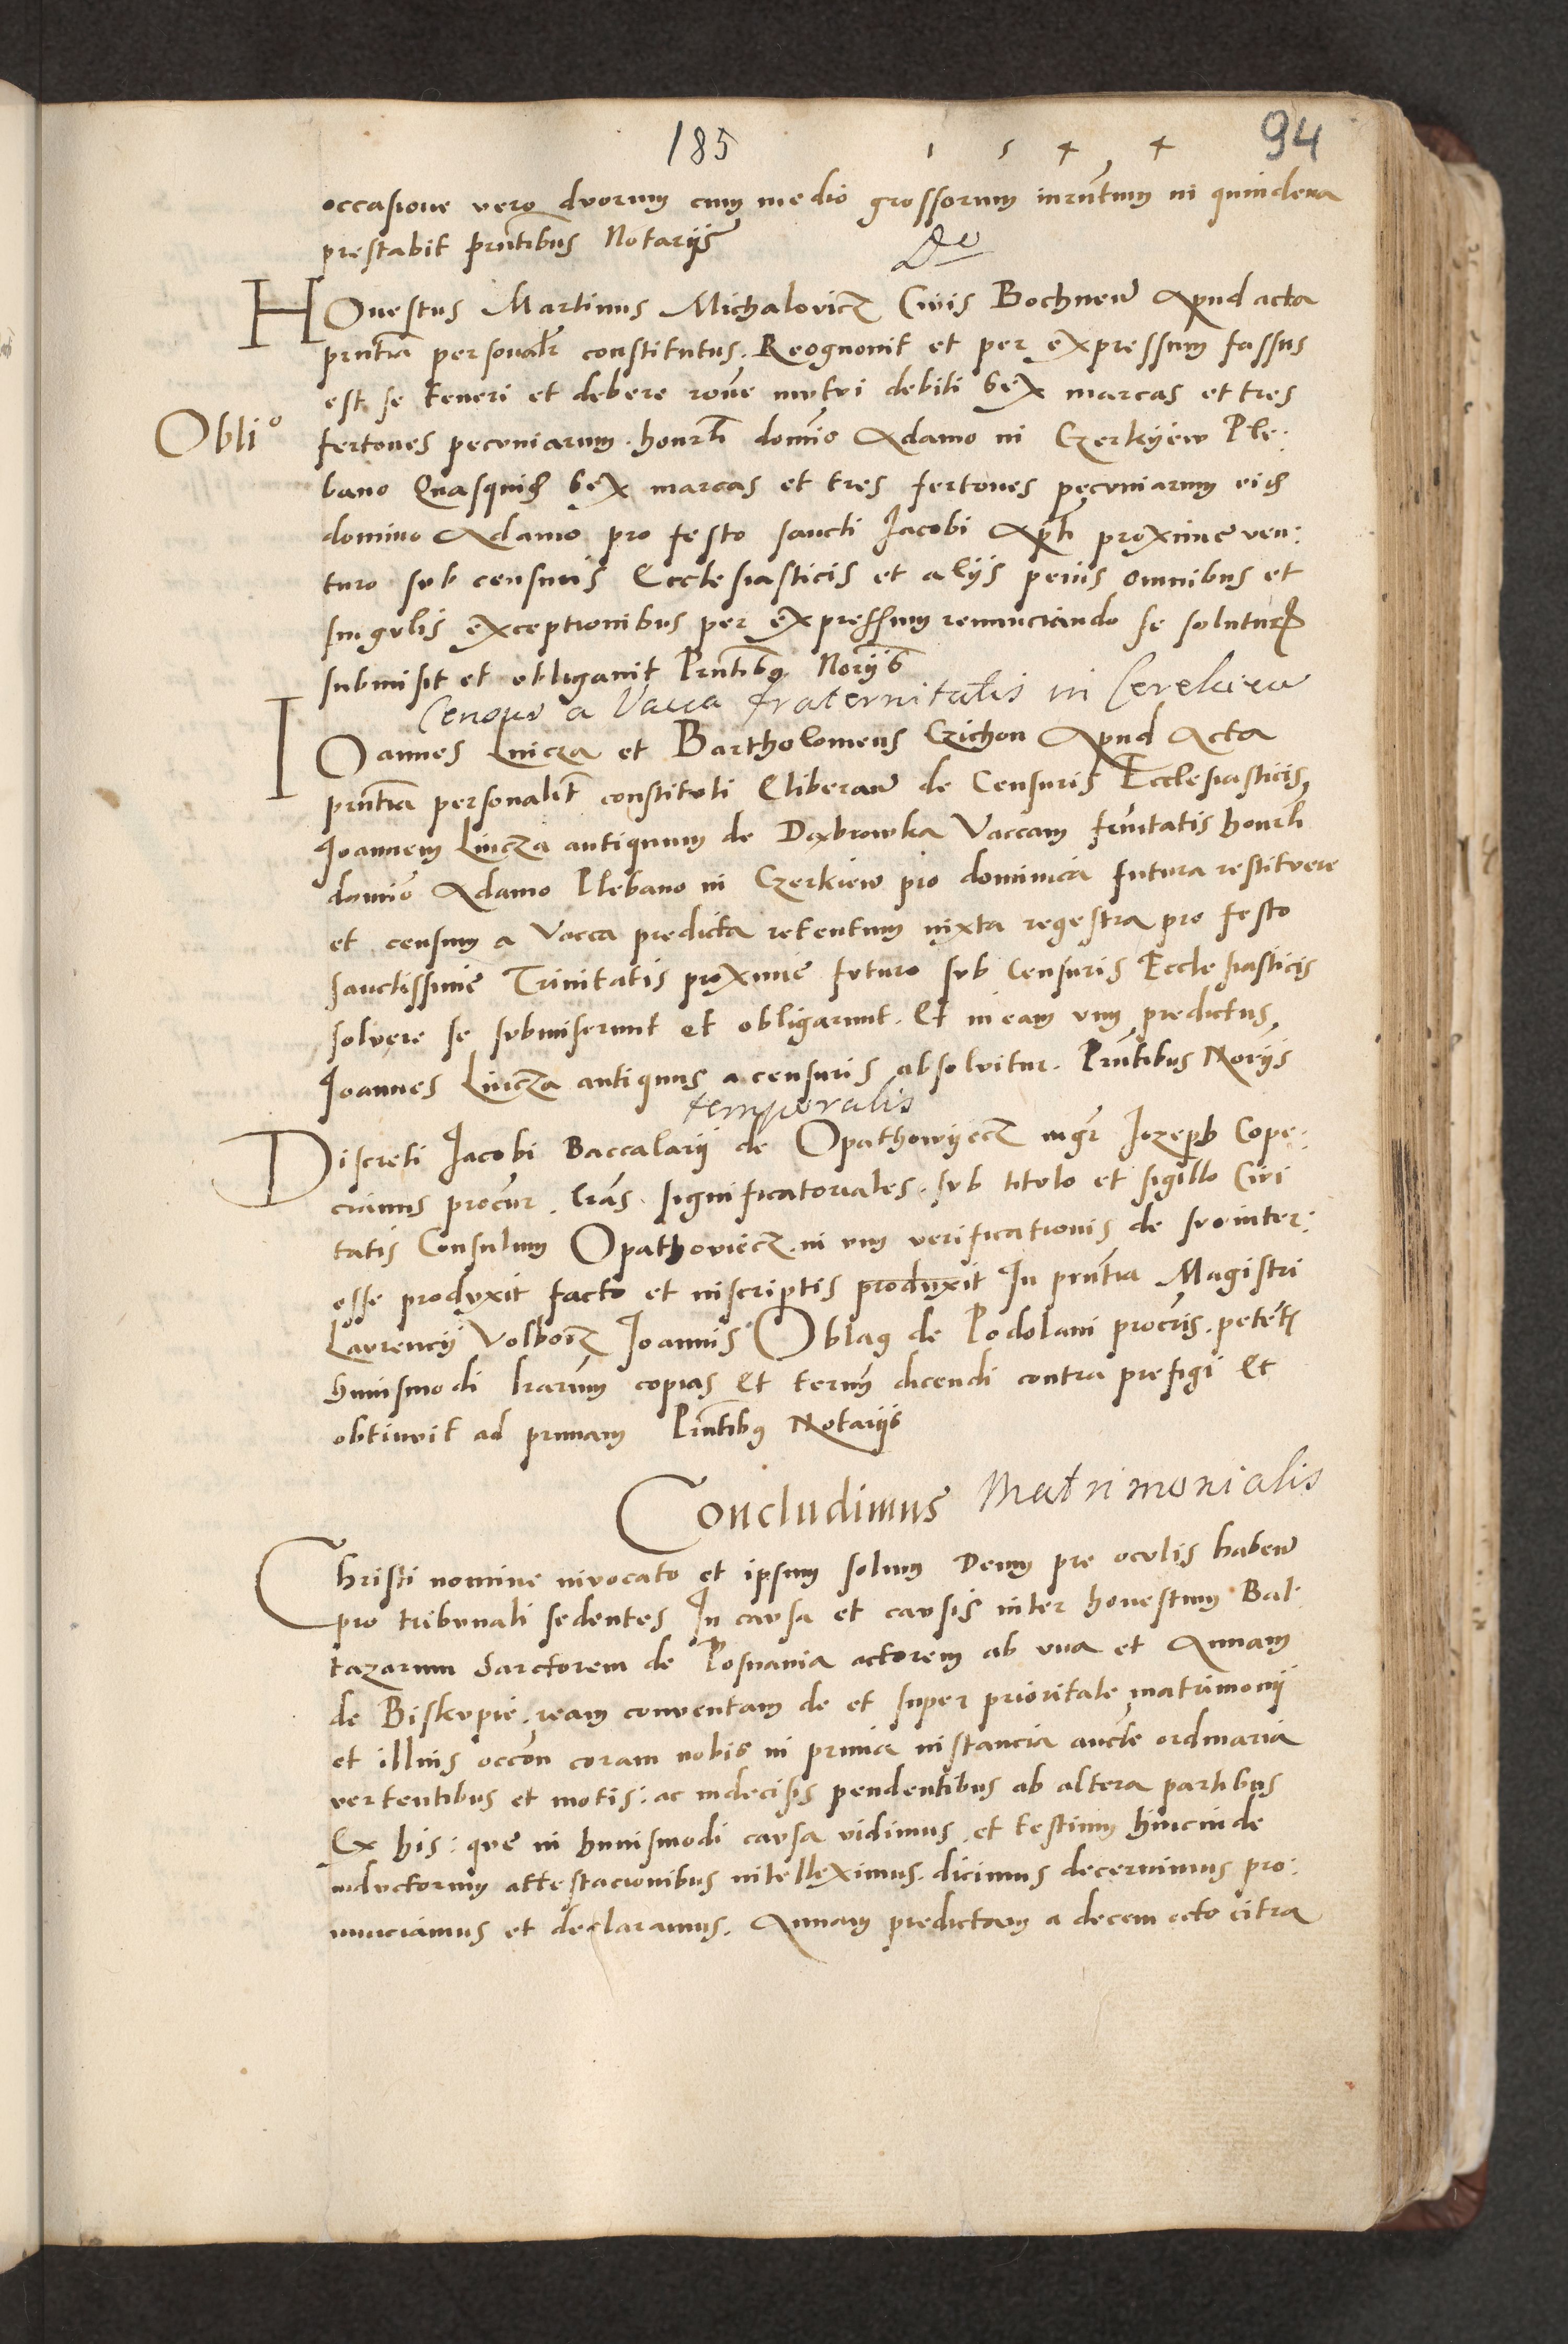 185
1 5 4 4
94
occasione vero dvorum cum medio grossorum iurūtum in quindena
prestabit prñtibus Notariis
De
HOnestus Martinus Michalovicz Civis Bochnen Apud acta
prñtia personalr constitutus. Reognovit et per expressum fassus
est se teneri et debere rone mutvi debiti sex marcas et tres
Oblio
fertones pecvniarum. honrli domio Adamo in Czerkyew Ple:
bano Quasquid sex marcas et tres fertones pecvniarum eid
domino Adamo pro festo sancti Jacobi Apli proxime ven:
turo svb censuris Ecclesiasticis et alijs penis omnibus et
singvlis exceptionibus per expressum renunciando se soluturum
submisit et obligavit Prñtibus Noriis
Census a Vacca fraternitatis in Cerekiew
IOannes Luicza et Bartholomeus Czichon Apud Acta
prñtia personalit constituti Cliberarunt de Censuris Ecclesiasticis
Joannem Luicza antiquum de Dąbrowka Vaccam frnitatis honrli
domio Adamo Plebano in Czerkiew pro dominica futura restitvere
et censum a Vacca predicta retentum iuxta regestra pro festo
sanctissime Trinitatis proxime futuro svb Censuris Ecclesiasticis
solvere se svbmiserunt et obligarunt. Et in eam vim predictus
Joannes Luicza antiquus a censuris absolvitur. Prñtibus Noriis
temporalis
Discreti Jacobi Baccalarij de Opathowyecz mgr Jozeph Cope:
cinius procur. lras. significatoriales. svb titvlo et sigillo Civi
tatis Consulum Opathoviecz. in vim verificationis de svo inter:
esse prodvxit facto et inscriptis produxit In prñtia Magistri
Lavrencij Volborz Joannis Oblag de Podolani procris. petetis
huiusmodi lrarum copias Et termī dicendi contra prefigi Et
obtinvit ad primam Prñtibus Notariis
Concludimus Matrimonialis
Christi nomine invocato et ipsum solum Deum pre ocvlis haben
pro tribvnali sedentes In cavsa et cavsis inter honestum Bal:
tazarum Sarctorem de Posnania actorem ab vna et Annam
de Biskvpie. ream conventam de et super prioritate matrimonij
et illius occon coram nobis in prima instancia aucte ordinaria
vertentibus et motis: ac indecisis pendentibus ab altera partibus
Ex his: que in huiusmodi cavsa vidimus et testium hincinde
indvctorum attestacionibus intelleximus. dicimus decernimus pro:
nunciamus et declaramus. Annam predictam a decem octo citra